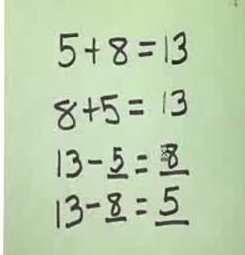 5+8=13
8+5=13
13-5=8
13-8=5